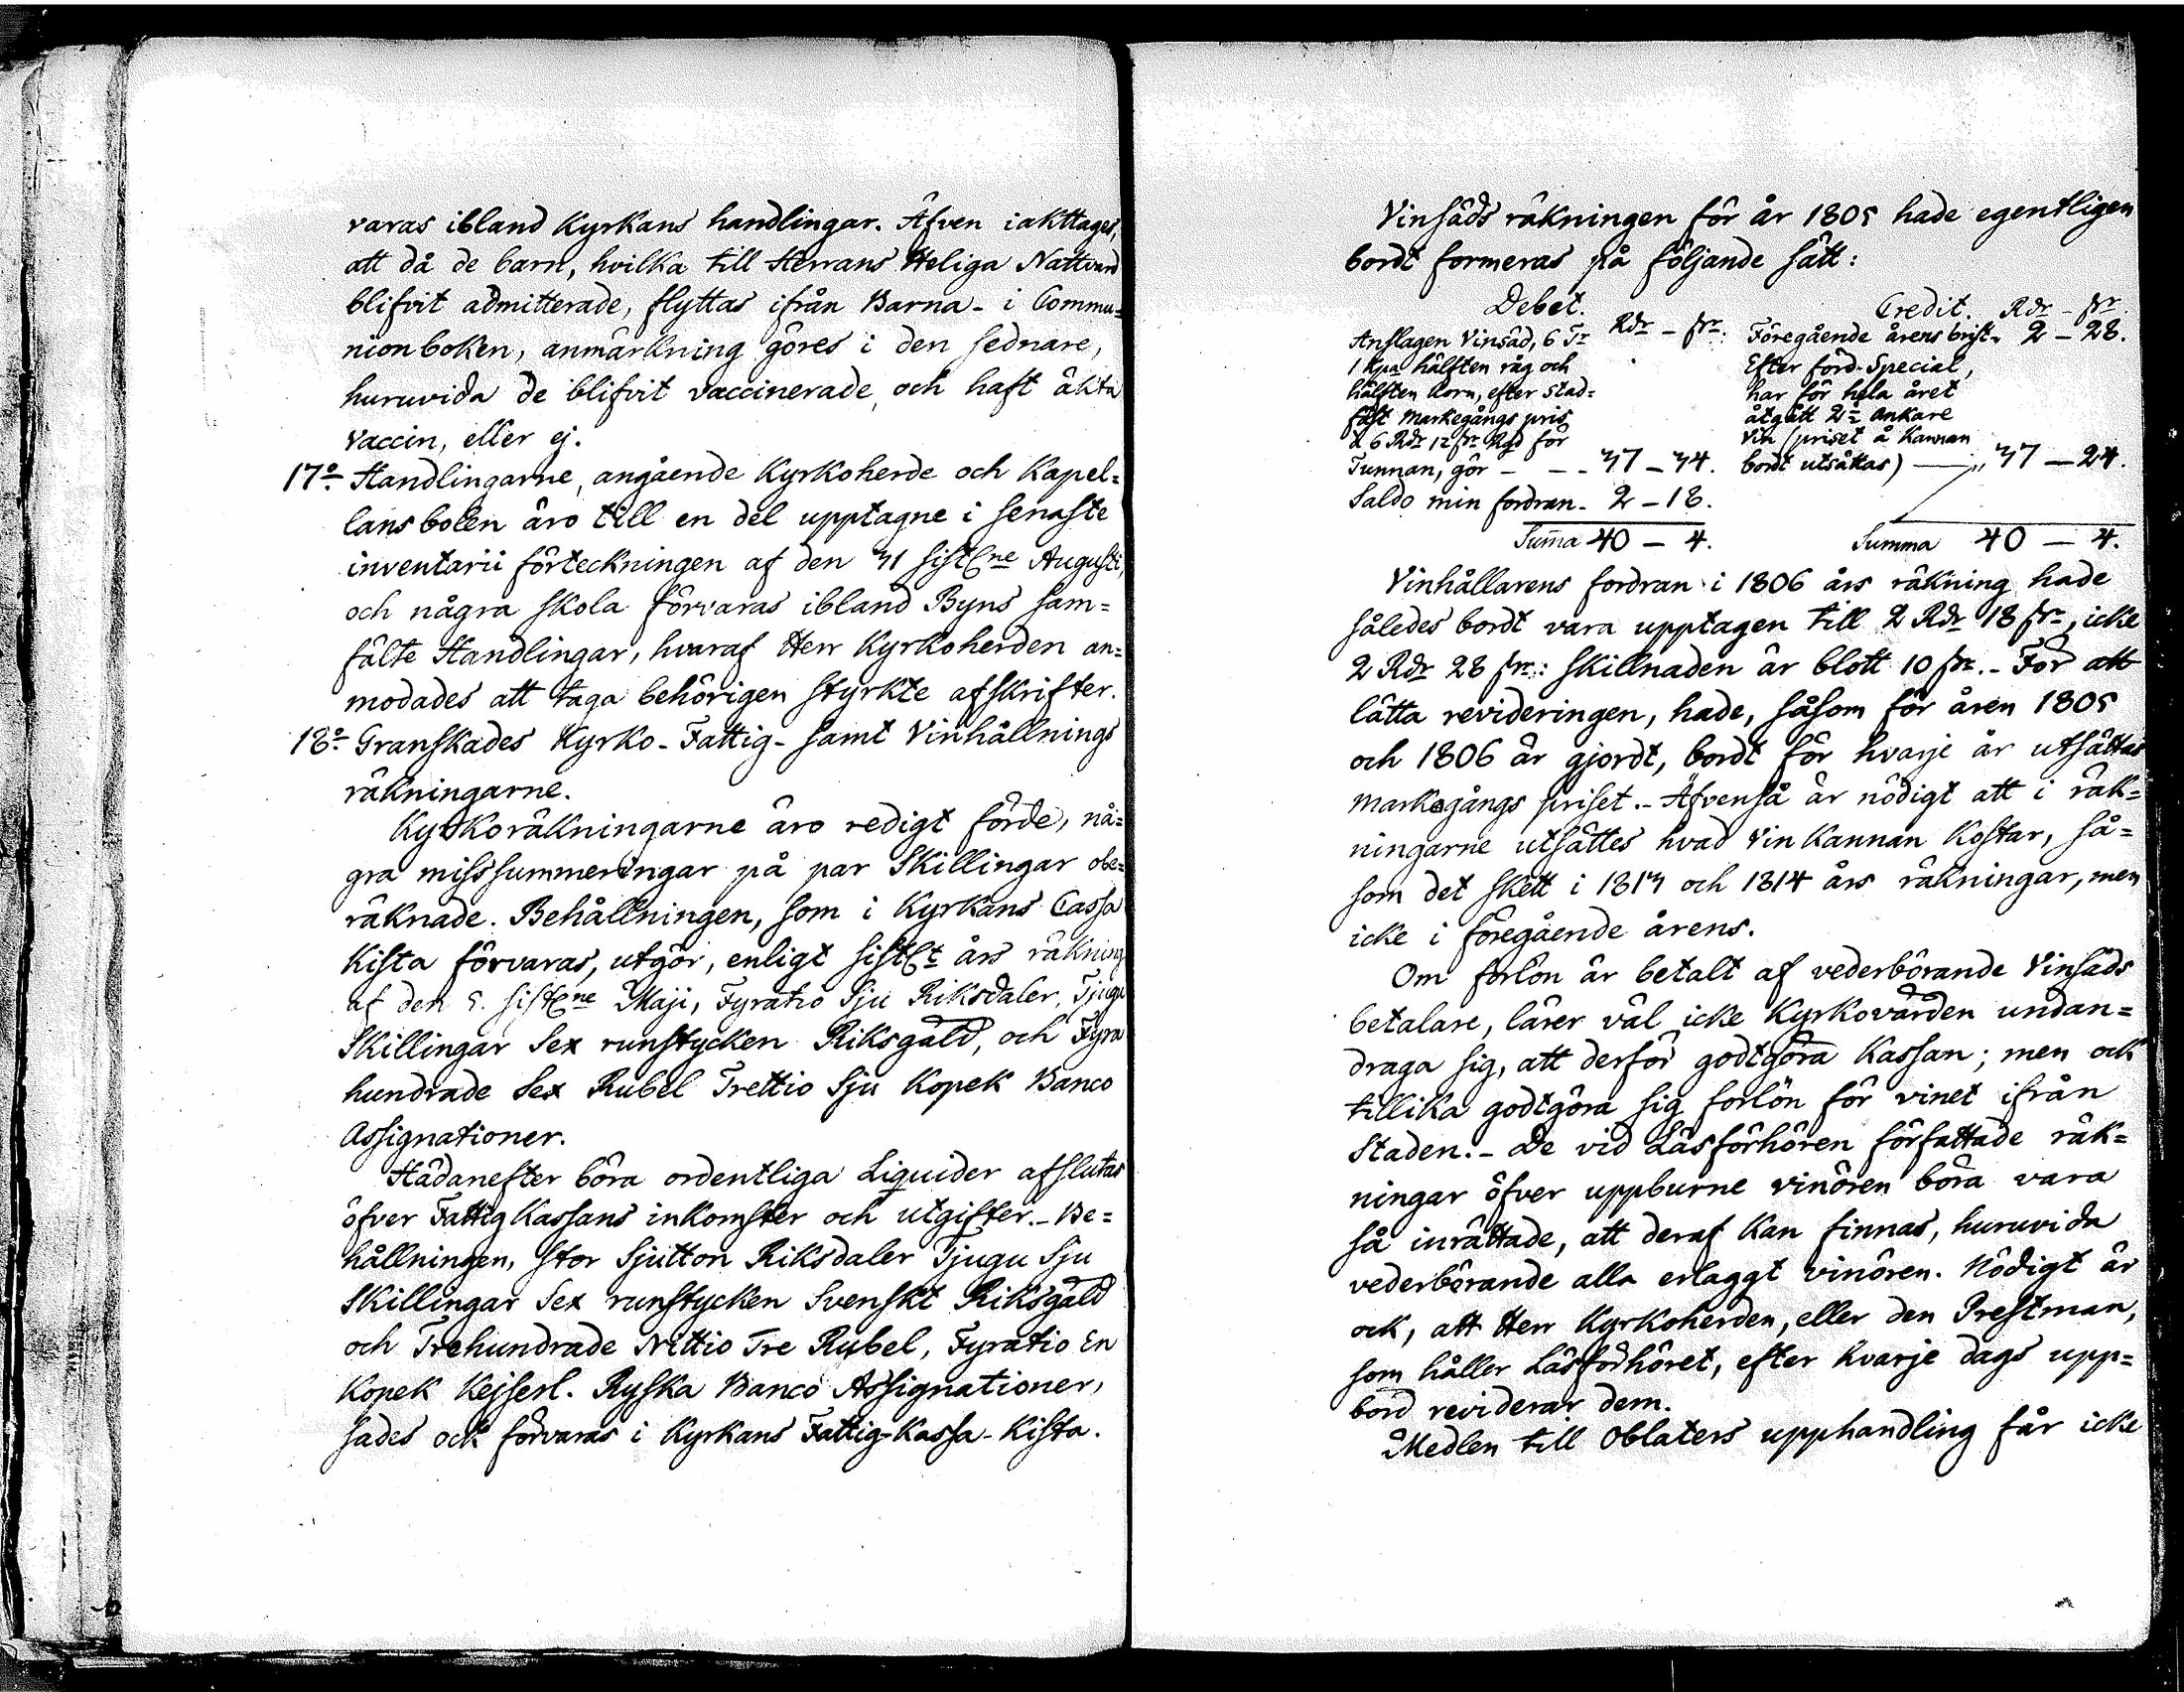 varas ibland Kyrkans handlingar. Äfven iakttages,
att då de barn, hvilka till Herrans Heliga Nattvard
blifvit admitterade, flyttas ifrån Barna- i Commu=
nionboken, anmärkning göres i den sednare,
huruvida de blifvit vaccinerade, och haft äkta
Vaccin, eller ej.
17:o Handlingarne, angående Kyrkoherde och Kapel=
lansbolen äro till en del upptagne i senaste
inventarii förteckningen af den 31 sistl:ne Augusti,
och några skola förvaras ibland Byns sam=
fälte Handlingar, hvaraf Herr Kyrkoherden an=
modades att taga behörigen styrkte afskrifter.
18:o Granskades Kyrko- Fattig- samt Vinhållnings
räkningarne.
Kyrkoräkningarne äro redigt förde, nå=
gra misssummeringar på par Skillingar obe=
räknade. Behållningen, som i Kyrkans Cassa
Kista förvaras, utgör, enligt sistl:t års räkning
af den 5. sistl:ne Maji, Fyratio Sju Riksdaler, Tjugu
Skillingar Sex runstycken Riksgäld, och Fyra
hundrade Sex Rubel Trettio Sju Kopek Banco
Assignationer.
Hädanefter böra ordentliga Liquider afslutas
öfver Fattig Kassans inkomster och utgifter.- Be=
hållningen, stor Sjutton Riksdaler Tjugu Sju
Skillingar Sex runstycken Svenskt Riksgäld
och Trehundrade Nittio Tre Rubel, Fyratio En
Kopek Kejserl. Ryska Banco Assignationer,
sades och förvaras i Kyrkans Fattig-Kassa-Kista.
Vinsäds räkningen för år 1805 hade egentligen
bordt formeras på följande sätt:
Debet. Rdr - sr.
Anslagen Vinsäd, 6 Tr
1 Kpa hälften råg och
hälften Korn, efter Stad=
fäst Markegångs pris
à 6 Rdr 12 sr. Rgd för
Tunnan, gör - - - 37 - 34.
Saldo min fordran - 2 - 18.
Summa 40 - 4.
Credit. Rdr - sr.
Föregående årens brist 2 - 28.
Efter förd Special,
har för hela året
åtgått 2½ Ankare
Vin (priset å Kannan
bordt utsättas) — „ 37 - 24.
Summa 40 - 4.
Vinhållarens fordran i 1806 års räkning hade
således bordt vara upptagen till 2 Rdr 18 sr., icke
2 Rdr 28 sr.: Skillnaden är blott 10 sr.- För att
lätta revideringen, hade, såsom för åren 1805
och 1806 är gjordt, bordt för hvarje år utsättas
markegångs priset.- Äfvenså är nödigt att i räk=
ningarne utsättes hvad Vin Kannan Kostar, så=
som det skett i 1813 och 1814 års räkningar, men
icke i föregående årens.
Om forlön är betalt af vederbörande Vinsäds
betalare, lärer väl icke Kyrkovärden undan=
draga sig, att derför godtgöra Kassan; men ock
tillika godtgöra sig forlön för vinet ifrån
Staden.- De vid Läsförhören författade räk=
ningar öfver uppburne vinören böra vara
så inrättade, att deraf Kan finnas, huruvida
vederbörande alla erlaggt vinören. Nödigt är
ock, att Herr Kyrkoherden, eller den Prestman,
som håller Läsförhöret, efter hvarje dags upp=
börd reviderar dem.
Medlen till Oblaters upphandling får icke